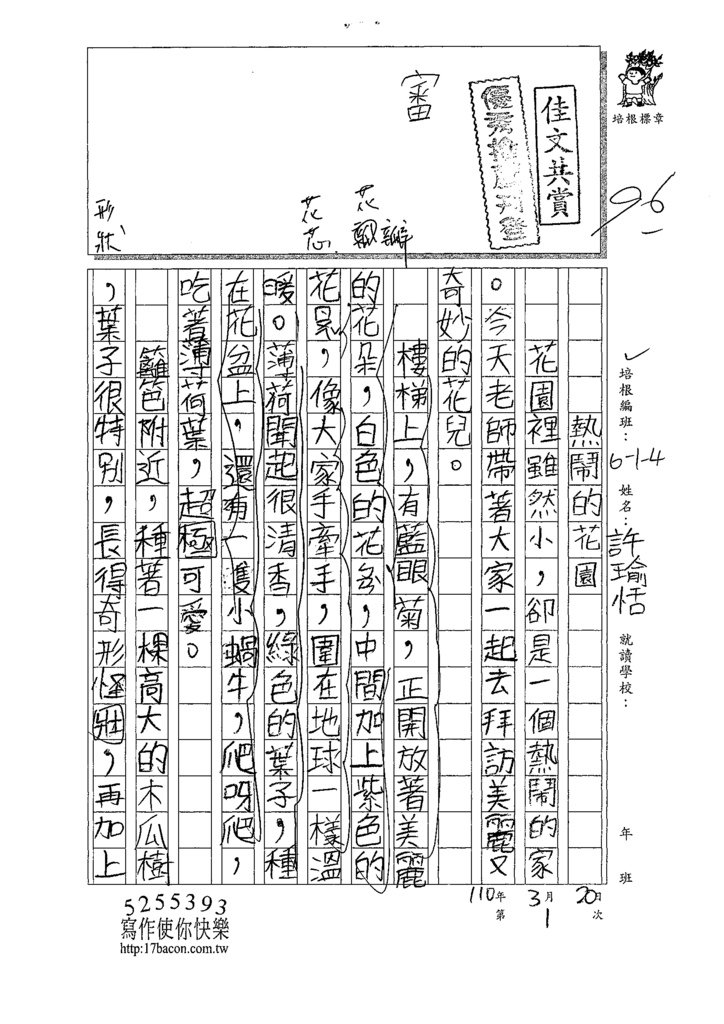 佳文共賞
培根標章
96
審
花瓣
花蕊
形狀
培根編班：6-1-4 姓名：許瑜恬 就讀學校： 年 班
110年 3月 20日
第 1 次
熱鬧的花園
花園裡雖然小，卻是一個熱鬧的家
。今天老師帶著大家一起去拜訪美麗又
奇妙的花兒。
樓梯上，有藍眼菊，正開放著美麗
的花朵，白色的花，中間加上紫色的
花，像大家手牽手，圍在地球一樣溫
暖。薄荷聞起很清香，綠色的葉子，種
在花盆上，還有一隻小蝸牛，爬呀爬，
吃著薄荷葉，超極可愛。
籬笆附近，種著一棵高大的木瓜樹
，葉子很特別，長得奇形怪壯，再加上
5255393
寫作使你快樂
http:17bacon.com.tw